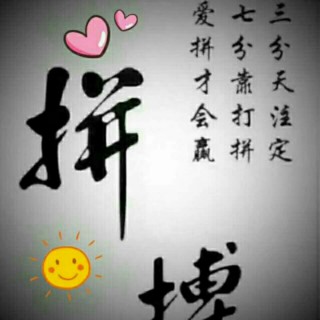 三分天注定
七分靠打拼
爱拼才会赢
拼
搏